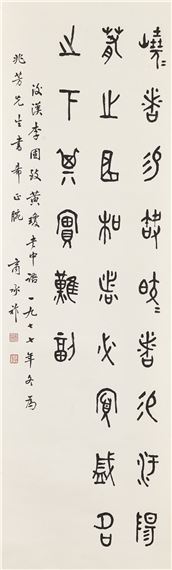 嶢〻者易缺皎〻者易污陽
春之曲和者必寡盛名
之下其實難副
後漢李固致黃瓊書中語一九七七年冬為
兆芳先生書希正腕 商承祚